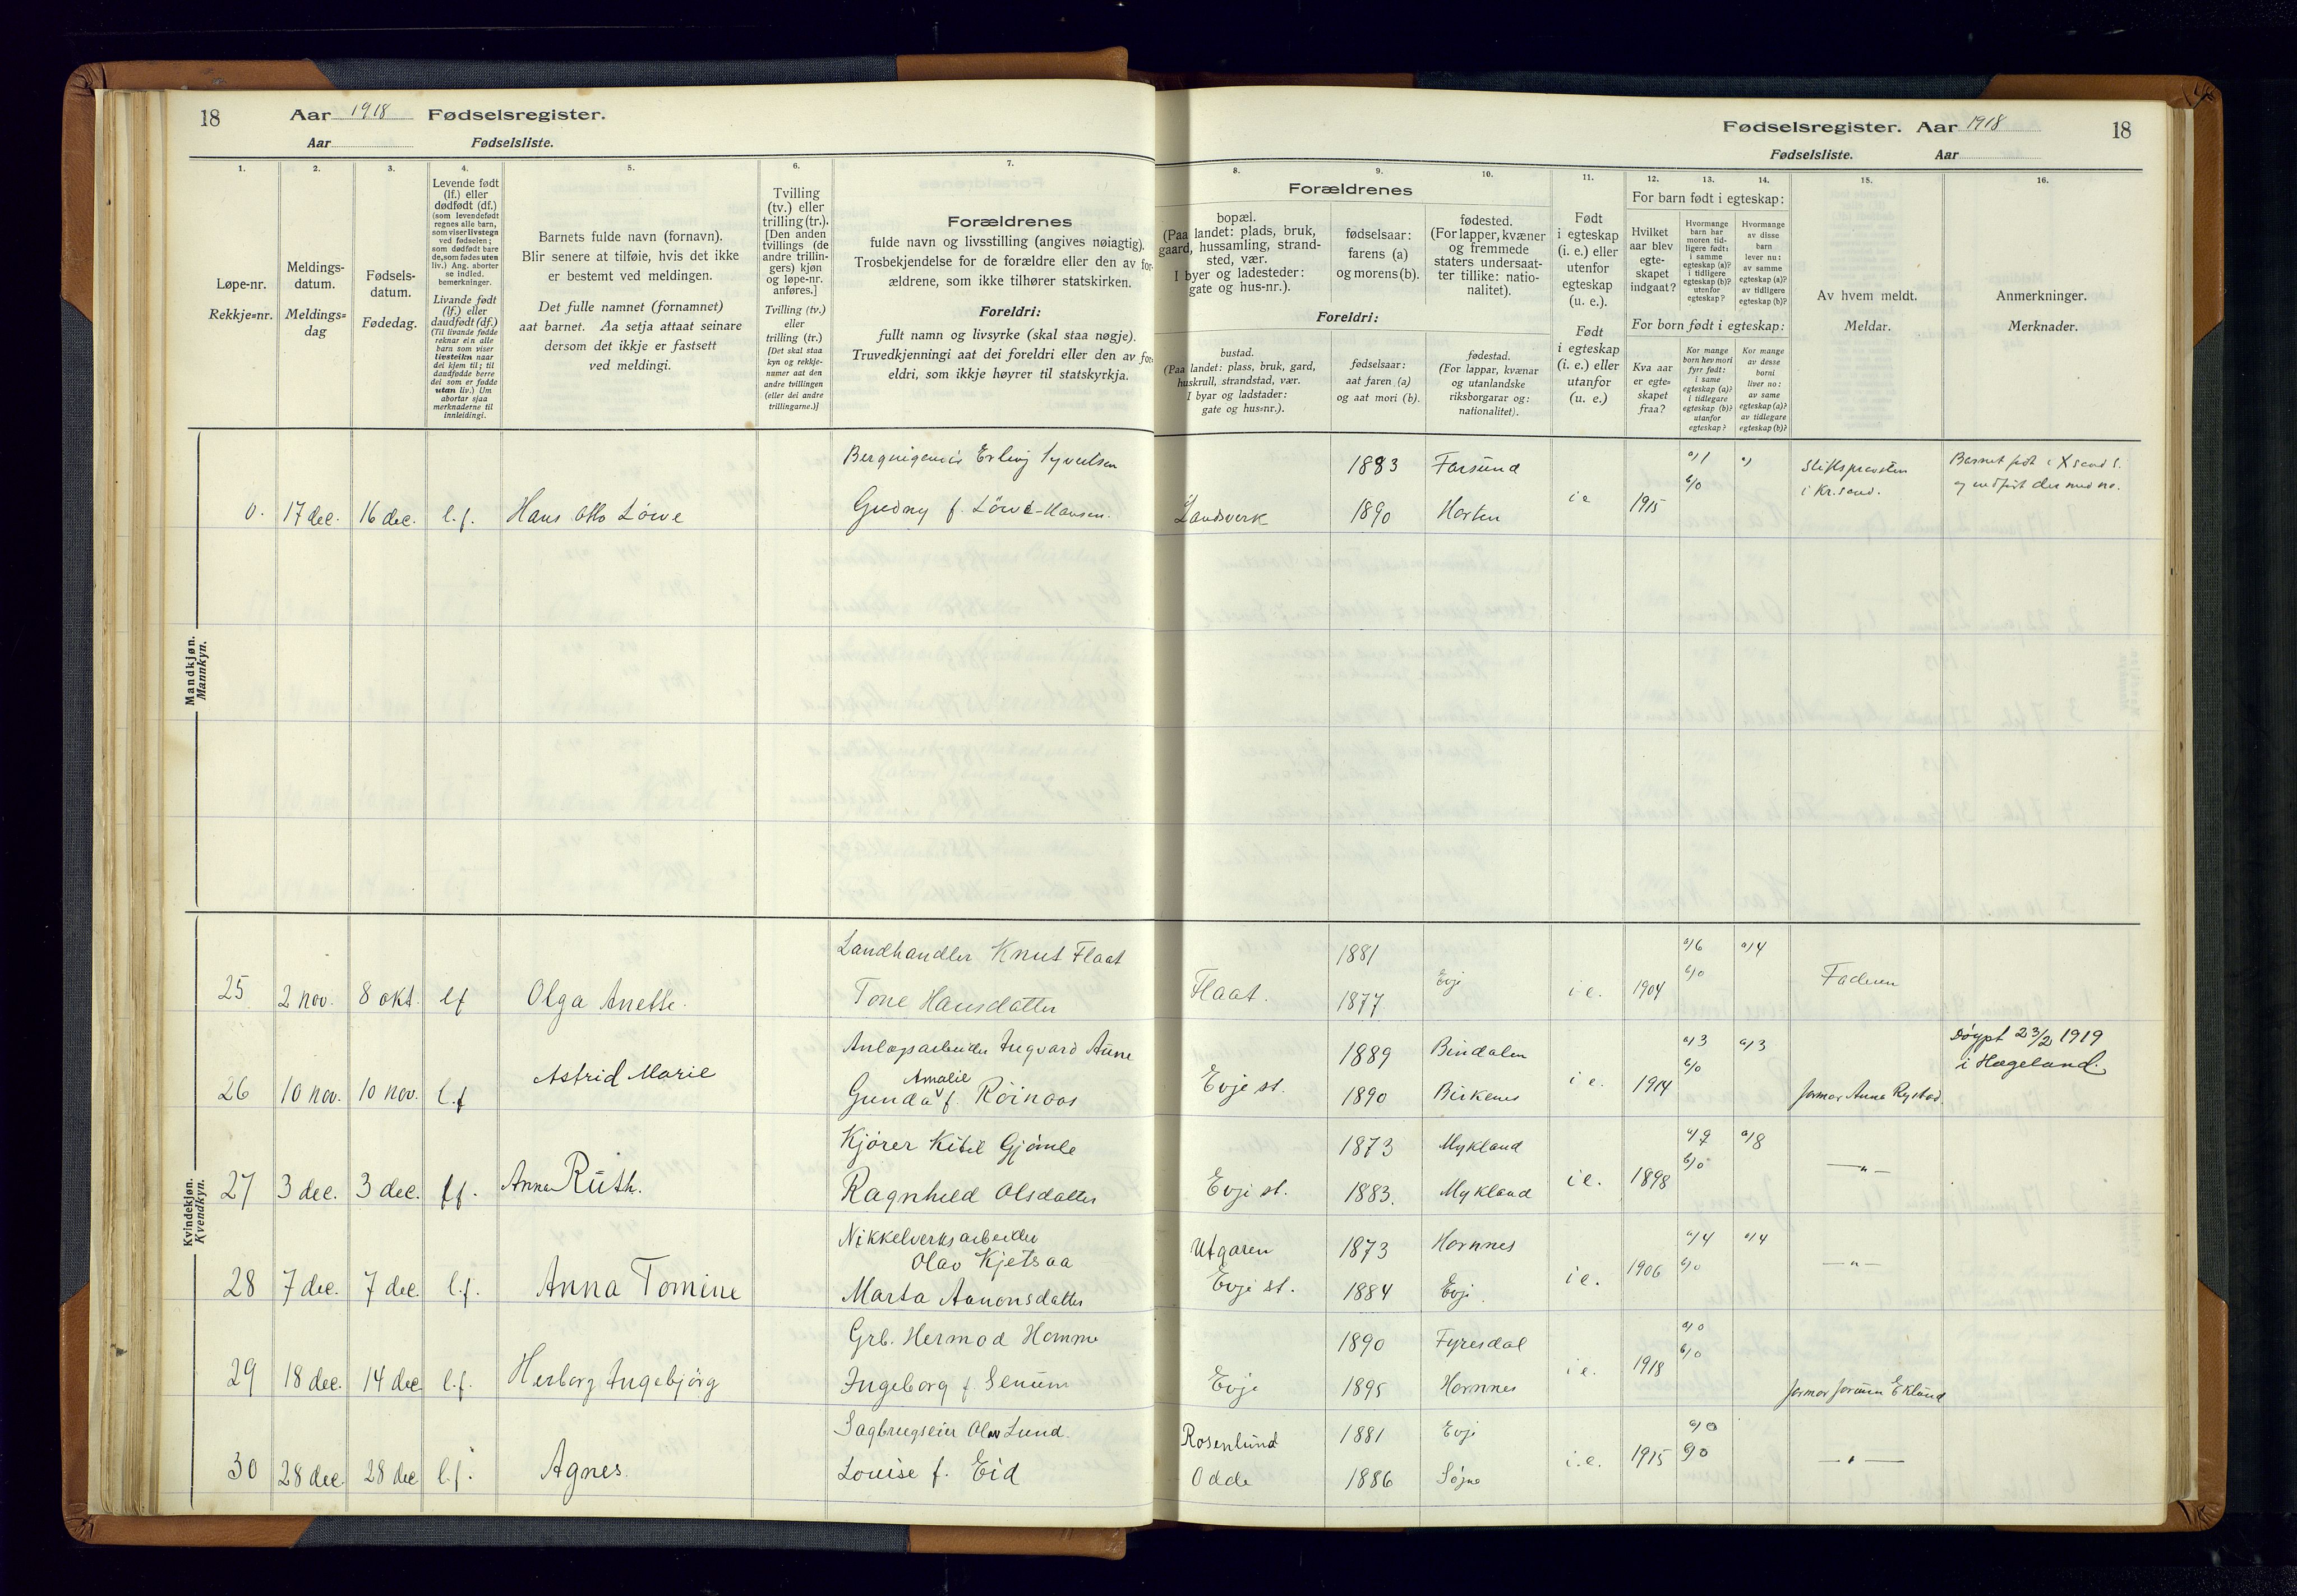 18 Aar 1918 Fødselsregister.
Aar Fødselsliste.
Fødselsregister. Aar 1918 18
Fødselsliste. Aar
1. 2. 3. 4. 5. 6. 7. 8. 9. 10. 11. 12. 13. 14. 15. 16.
Løpe-nr.
Rekkje-nr.
Meldings-
datum.
Meldings-
dag
Fødsels-
datum.
Fødedag.
Levende født
(lf.) eller
dødfødt (df.)
(som levendefødt
regnes alle barn,
som viser livstegn
ved fødselen;
som dødfødt bare
de, som fødes uten
liv.) Ang. aborter
se indled.
bemerkninger.
Livande født
(lf.) eller
daudfødt (df.)
(Til livande fødde
reknar ein alle
barn som viser
livsteikn naar
dei kjem til; til
daudfødde berre
dei som er fødde
utan liv.) Um
abortar sjaa
merknaderne til
innleidingi.
Barnets fulde navn (fornavn).
Blir senere at tilføie, hvis det ikke
er bestemt ved meldingen.
Det fulle namnet (fornamnet)
aat barnet. Aa setja attaat seinare
dersom det ikkje er fastsett
ved meldingi.
Tvilling
(tv.) eller
trilling (tr.).
[Den anden
tvillings (de
andre trillin-
gers) kjøn
og løpe-nr.
anføres.]
Tvilling (tv.)
eller
trilling (tr.)
[Det skal staa
kyn og rekkje-
numer aat den
andre tvillingen
(eller dei andre
trillingarne.)]
Forældrenes
fulde navn og livsstilling (angives nøiagtig).
Trosbekjendelse for de forældre eller den av for-
ældrene, som ikke tilhører statskirken.
Foreldri:
fullt namn og livsyrke (skal staa nøgje).
Truvedkjenningi aat dei foreldri eller den av for-
eldri, som ikkje høyrer til statskyrkja.
Forældrenes
bopæl.
(Paa landet: plads, bruk,
gaard, hussamling, strand-
sted, vær.
I byer og ladesteder:
gate og hus-nr.).
fødselsaar:
farens (a)
og morens (b).
fødested.
(For lapper, kvæner
og fremmede
staters undersaat-
ter tillike: natio-
nalitet).
Foreldri:
bustad.
(Paa landet: plass, bruk, gard,
huskrull, strandstad, vær.
I byar og ladstader:
gate og hus-nr.).
fødselsaar:
aat faren (a)
og aat mori (b).
fødestad.
(For lappar, kvænar
og utanlandske
riksborgarar og:
nationalitet).
Født
i egteskap
(i. e.) eller
utenfor
egteskap
(u. e.).
Født
i egteskap
(i. e.) eller
utanfor
(u. e.)
For barn født i egteskap:
Hvilket
aar blev
egte-
skapet
indgaat?
Hvormange
barn har
moren tid-
ligere født:
i samme
egteskap (a)?
i tidligere
egteskap (b)?
utenfor
egteskap?
Hvormange
av disse
barn
lever nu:
av samme
egteskap (a)?
av tidligere
egteskap (b)?
For born født i egteskap:
Kva aar
er egte-
skapet
fraa?
Kor mange
born hev mori
fyrr født:
i same
egteskap (a)?
i tidlegare
egteskap (b)?
utanfor
egteskap?
Kor mange
av desse
borni
liver no:
av same
egteskap (a)?
av tidlegare
egteskap (b)?
Av hvem meldt.
Meldar.
Anmerkninger.
Merknader.
Mandkjøn.
Mannkyn.
Erling 1883 Farsund a/1 Stiftsprovsten
b/0 i Kr.sand.
0. 17 dec. 16 dec. l.f. Hans Otto Löwe Gudny f. Löwe-Hansen. Landsverk 1890 Horten i e 1915
Kvindekjøn.
Kvendkyn.
Landhandler Knut Flaat 1881 a/6 a/4
25 2 nov. 8 okt. lf Olga Anette. Tone Hansdatter Flaat. 1877 Evje i e. 1904 b/0 Faderen
Anlægsarbeider Ingvard Aune 1889 Bindalen a/3 a/3 Døypt 23/2 1919
i Hægeland.
26 10 nov. 10 nov. l.f Astrid Marie Gunda Amalie f. Röinaas Evje st. 1890 Birkenes i e. 1914 b/0 jormor Anna Rystad.
Kjörer Ketil Gjömle 1873 Mykland a/9 a/8
27 3 dec. 3 dec. lf. Anna Ruth. Ragnhild Olsdatter Evje st. 1883. Mykland i e. 1898 b/0 — " —
Nikkelverksarbeider
Olav Kjetsaa Utgaren 1873 Hornnes a/4 a/4
28 7 dec. 7 dec. l.f. Anna Tomine Marta Aanonsdatter Evje st. 1884 Evje i e. 1906 b/0 — " —
Grb. Hermod Homme 1890 Fyresdal a/0
29 18 dec. 14 dec l.f. Herborg Ingebjörg Ingeborg f Senum Evje 1895 Hornnes i e. 1918 b/0 jormor Jorunn Eklund
Sagbrugseier Olav Lund. Rosenlund 1881 Evje a/0
30 28 dec. 28 dec l.f. Agnes. Louise f. Eid Odde 1886 Søgne i.e. 1915 b/0 — " —